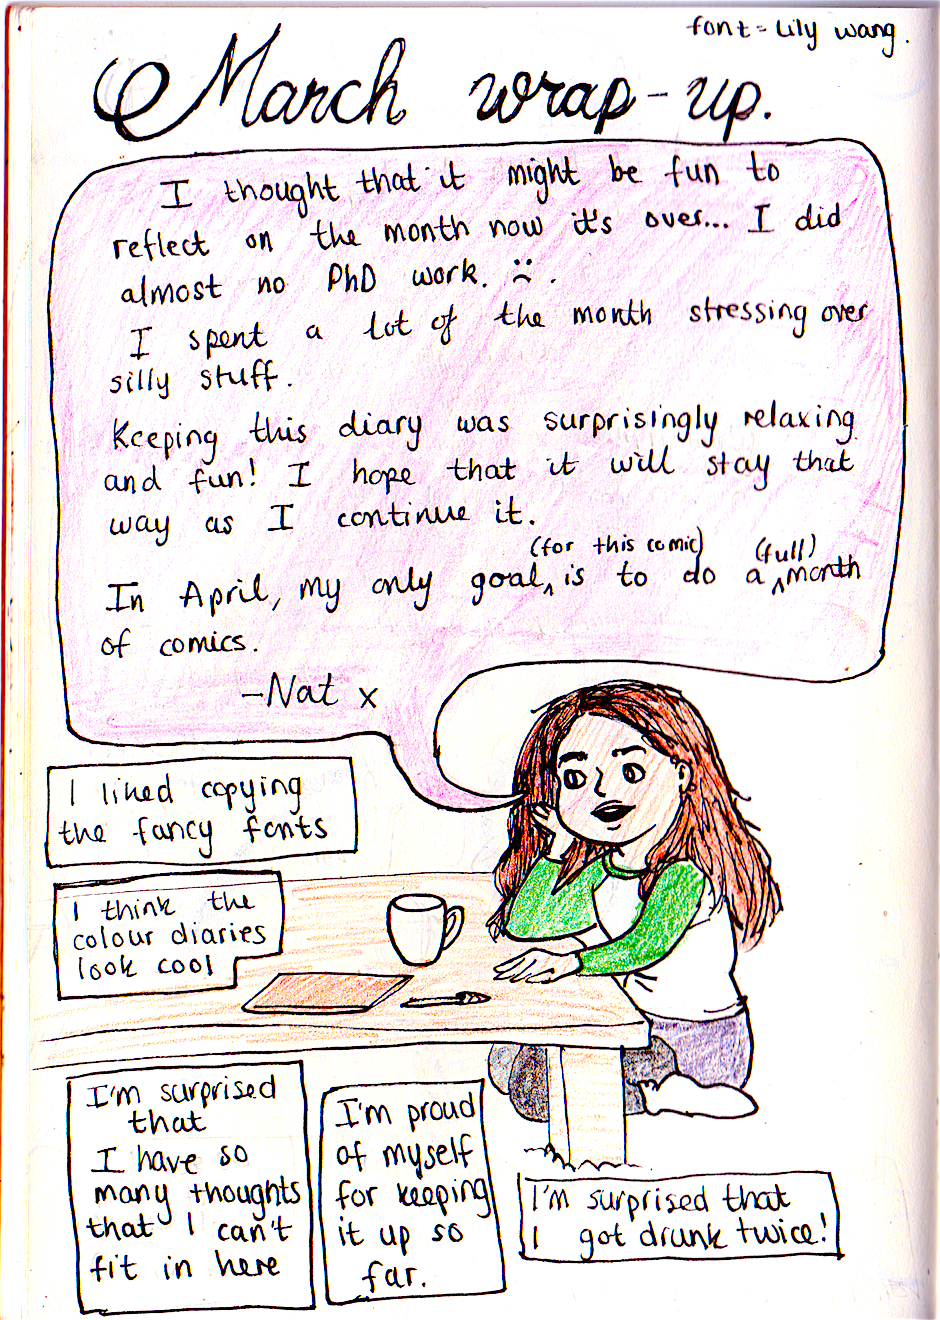 font = Lily wang.
March wrap-up.
I thought that it might be fun to
reflect on the month now it's over... I did
almost no PhD work. :( .
I spent a lot of the month stressing over
silly stuff.
Keeping this diary was surprisingly relaxing
and fun! I hope that it will stay that
way as I continue it.
(for this comic) (full)
In April, my only goal ^ is to do a ^ month
of comics.
-Nat x
I liked copying
the fancy fonts
I think the
colour diaries
look cool
I'm surprised
that
I have so
many thoughts
that I can't
fit in here
I'm proud
of myself
for keeping
it up so
far.
I'm surprised that
I got drunk twice!